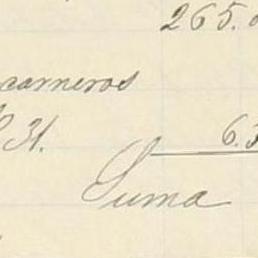 265.
carneros
31.
6.3
Suma